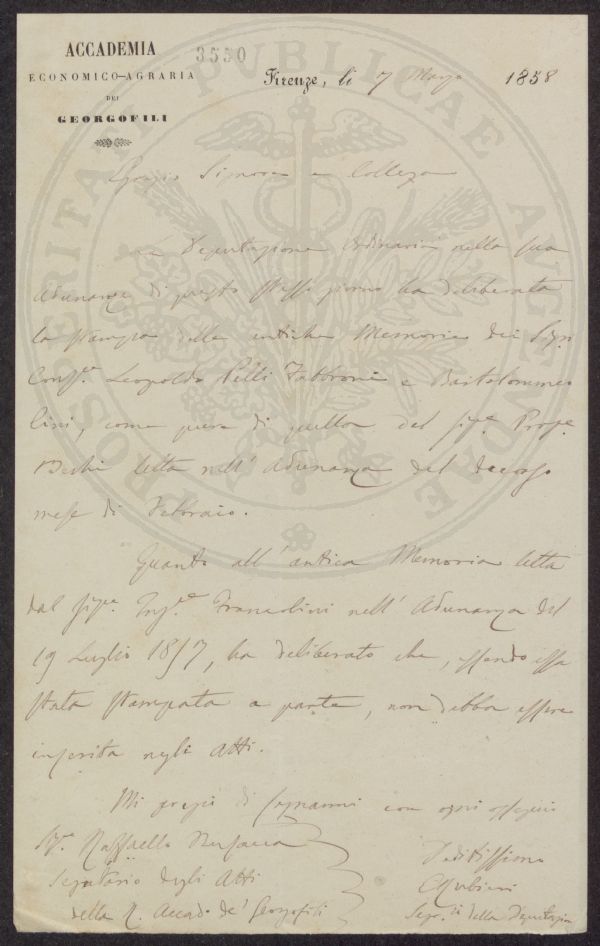 ACCADEMIA
ECONOMICO-AGRARIA
DEI
GEORGOFILI
3550
Firenze, li 7 Marzo 1858
PROSPERITATI PUBLICAE AUGENDAE
Egregio Signore e Collega
La Deputazione Ordinaria nella sua
Adunanza di questo stesso giorno ha deliberata
la stampa delle antiche Memorie dei Sigri
Consre Leopoldo Pelli Fabbroni e Bartolommeo
Cini, come pure di quella del Sigre Profre
Bechi letta nell' Adunanza del decorso
mese di Febbraio.
Quanto all' antica Memoria letta
dal Sigre Ingre Francolini nell' Adunanza del
19 Luglio 1857, ha deliberato che, essendo essa
stata stampata a parte, non debba essere
inserita negli Atti.
Mi pregio di segnarmi con ogni ossequio
Sigre Raffaello Busacca
Segretario degli Atti
della R. Accad. de' Georgofili
Deditissimo
C Rubieri
Segrio della Deputazione